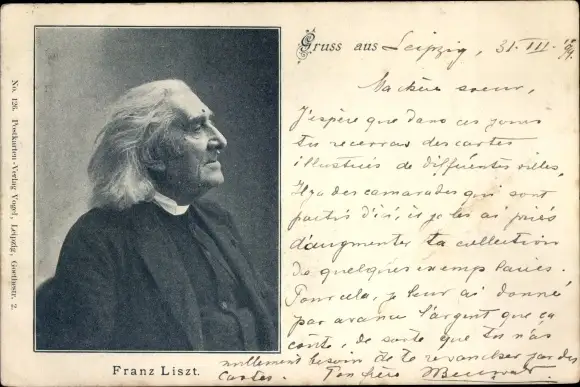 No. 126. Postkarten-Verlag Vogel, Leipzig, Goethestr. 2.
Franz Liszt.
Gruss aus Leipzig, 31. III.
Ma chère soeur,
J'espère que dans ces jours
tu recevras des cartes
illustrées de différentes villes.
Il y a des camarades qui sont
partis d'ici, et je les ai priés
d'augmenter ta collection
de quelques exemplaires.
Pour cela, je leur ai donné
par avance l'argent que ça
coûte, de sorte que tu n'as
nullement besoin de te revancher par des
cartes. Ton frère